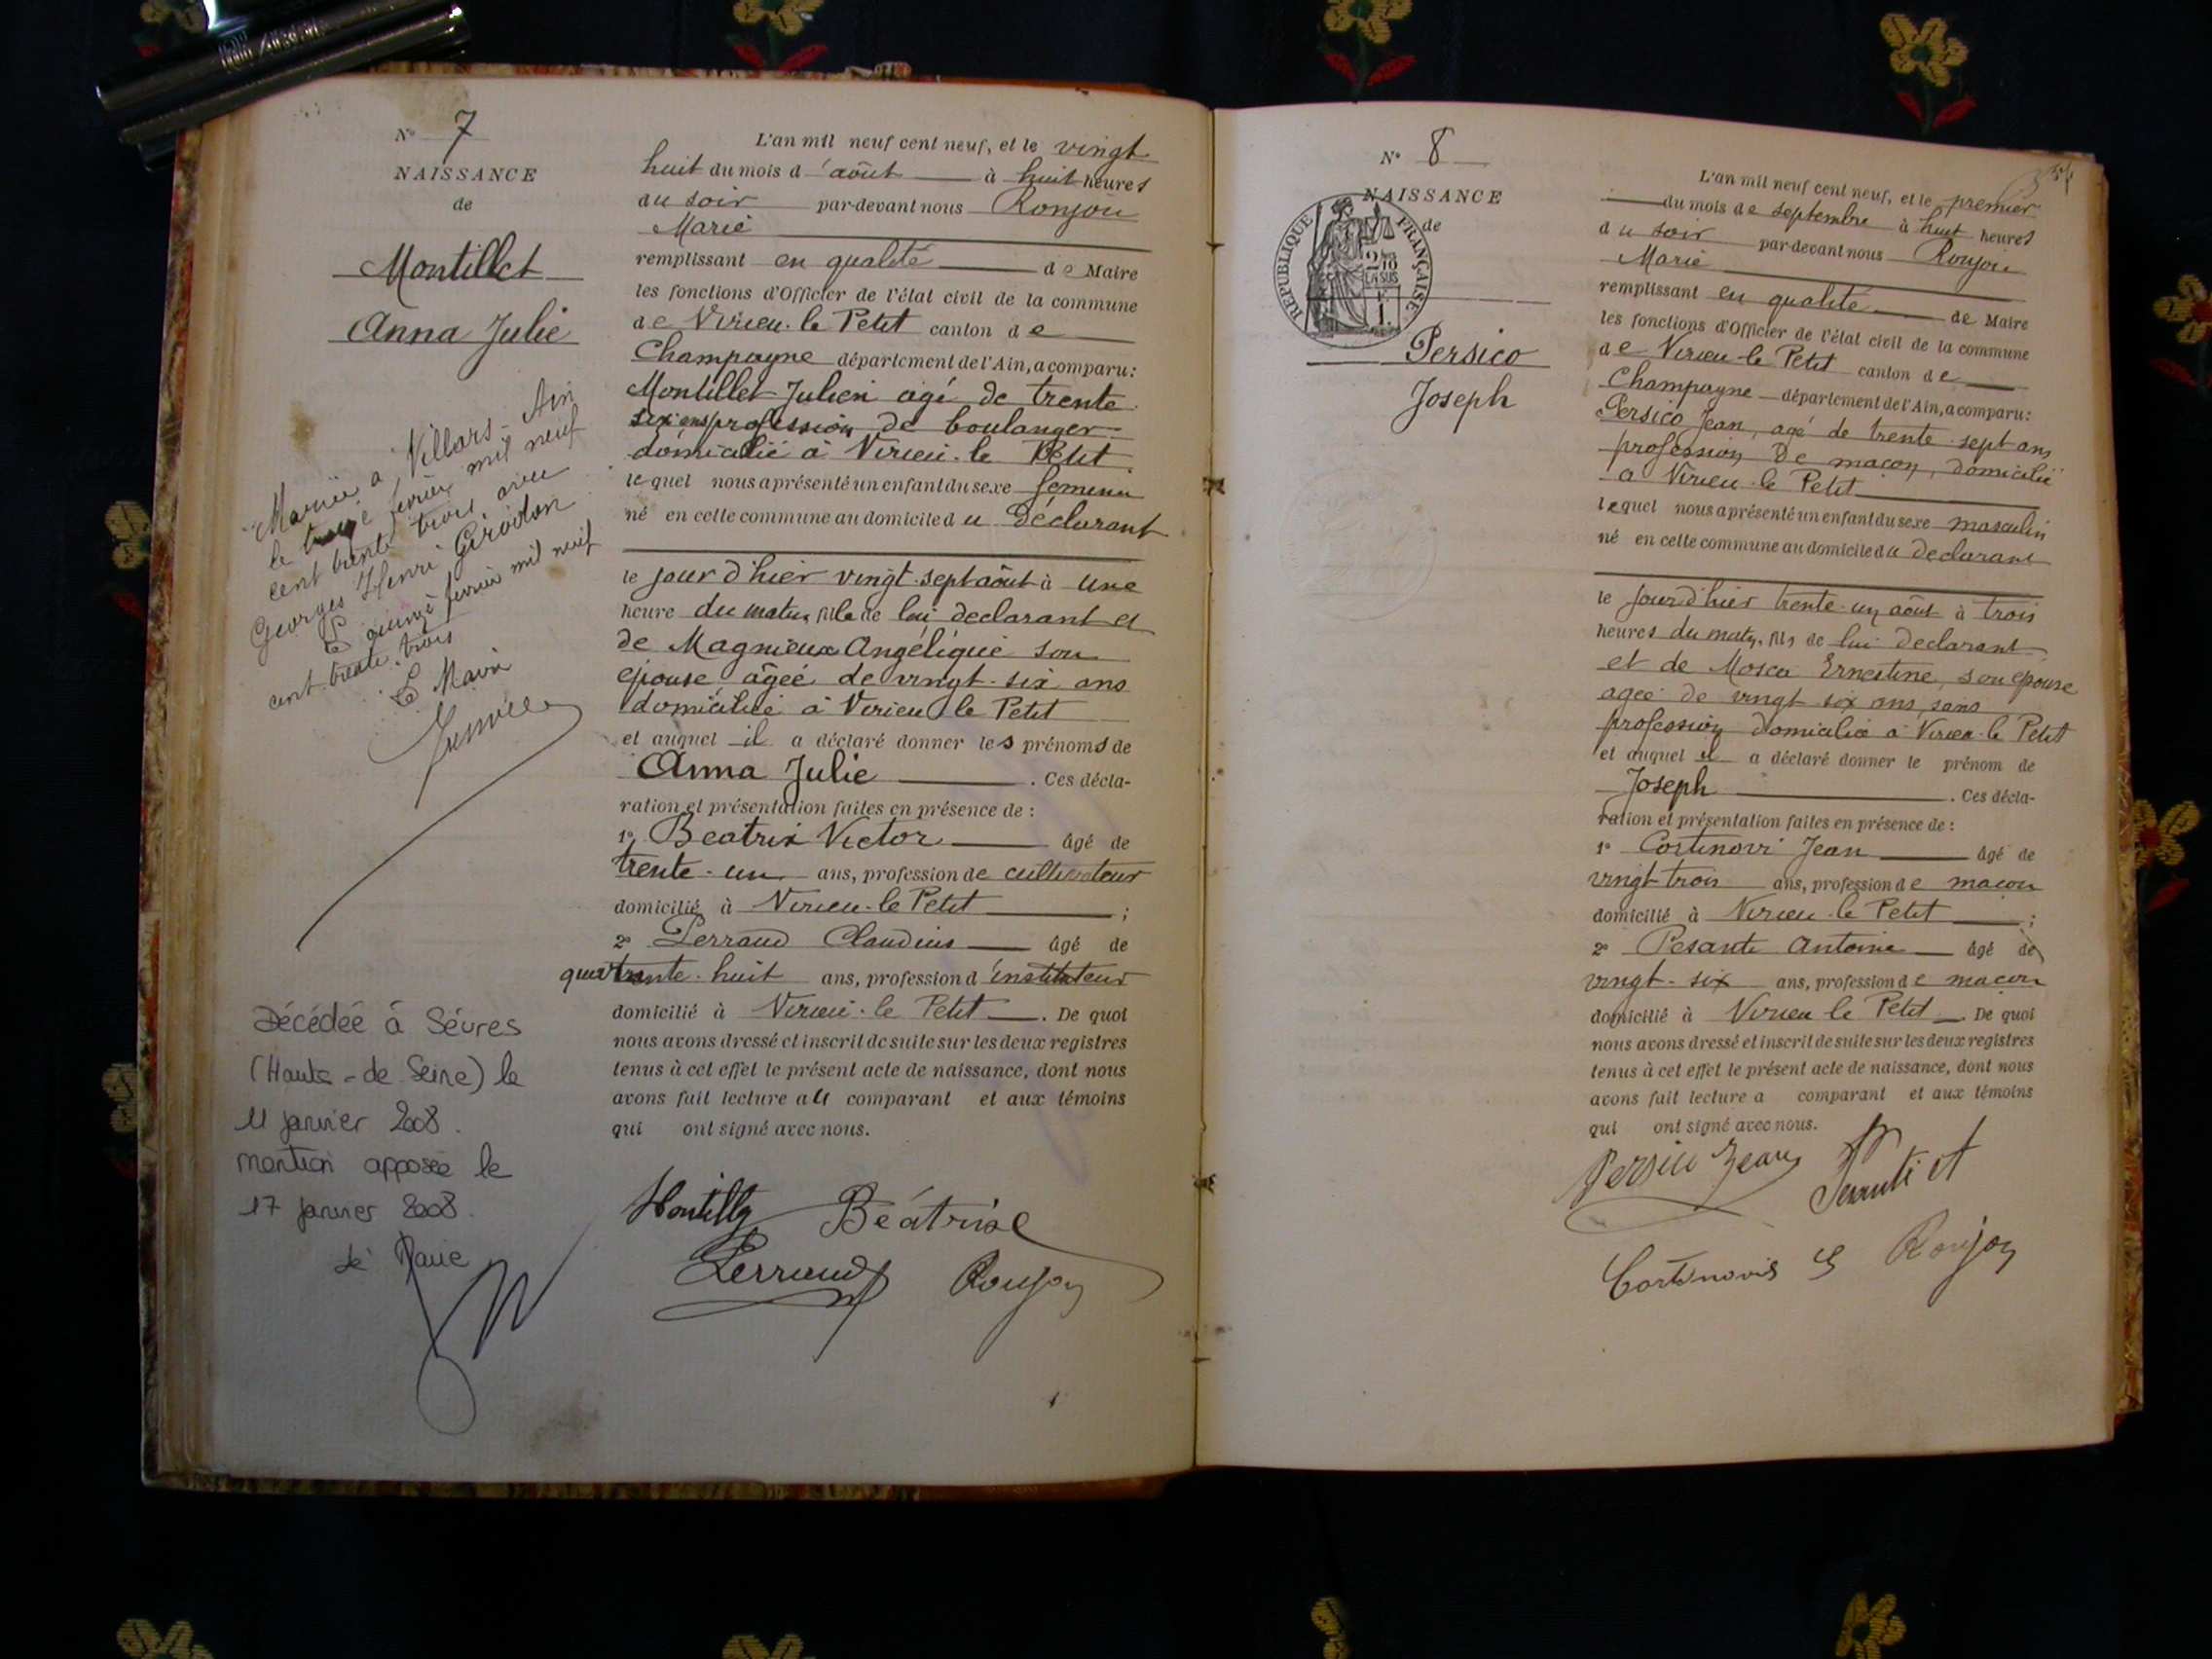 N° 7
NAISSANCE
de
Montillet
Anna Julie
Mariée à Villars - Ain
le treize février mil neuf
cent trente trois avec
Georges Henri Girodon
Le quinze février mil neuf
cent trente-trois
Le Maire
Décédée à Sèvres
(Hauts-de-Seine) le
11 janvier 2008.
mention apposée le
17 janvier 2008.
Le Maire
L'an mil neuf cent neuf, et le vingt
huit du mois d'août à huit heures
du soir par-devant nous Roujon
Marie
remplissant en qualité de Maire
les fonctions d'Officier de l'état civil de la commune
de Virieu-le Petit canton de
Champagne département de l'Ain, a comparu:
Montillet Julien agé de trente
six ans profession de boulanger
domicilié à Virieu-le Petit
lequel nous a présenté un enfant du sexe féminin
né en cette commune au domicile du déclarant
le jour d'hier vingt-sept août à une
heure du matin, fille de lui declarant et
de Magnieux Angélique son
épouse, âgée de vingt-six ans
domiciliée à Virieu le Petit
et auquel il a déclaré donner les prénoms de
Anna Julie . Ces décla-
ration et présentation faites en présence de :
1° Beatrix Victor âgé de
trente-un ans, profession de cultivateur
domicilié à Virieu-le Petit ;
2° Perraud Claudius âgé de
huit ans, profession d'instituteur
domicilié à Virieu-le Petit . De quoi
nous avons dressé et inscrit de suite sur les deux registres
tenus à cet effet le présent acte de naissance, dont nous
avons fait lecture au comparant et aux témoins
qui ont signé avec nous.
Montillet Béatrix
Perraud Roujon
N° 8
NAISSANCE
de
RÉPUBLIQUE FRANÇAISE
2/10
EN SUS
1.
Persico
Joseph
L'an mil neuf cent neuf, et le premier
du mois de septembre à huit heures
du soir par-devant nous Roujon
Marie
remplissant en qualité de Maire
les fonctions d'Officier de l'état civil de la commune
de Virieu-le Petit canton de
Champagne département de l'Ain, a comparu:
Persico Jean, agé de trente-sept ans
profession de maçon, domicilié
à Virieu-le Petit
lequel nous a présenté un enfant du sexe masculin
né en cette commune au domicile du declarant
le jour d'hier trente-un août à trois
heures du matin, fils de lui declarant
et de Mosca Ernestine, son épouse
agée de vingt six ans, sans
profession domiciliée à Virieu-le Petit
et auquel il a déclaré donner le prénom de
Joseph . Ces décla-
ration et présentation faites en présence de :
1° Cortinovi Jean âgé de
vingt trois ans, profession de maçon
domicilié à Virieu-le Petit ;
2° Pesanti Antoine âgé de
vingt-six ans, profession de maçon
domicilié à Virieu le Petit . De quoi
nous avons dressé et inscrit de suite sur les deux registres
tenus à cet effet le présent acte de naissance, dont nous
avons fait lecture a comparant et aux témoins
qui ont signé avec nous.
Persico Jean
Cortinovis G Roujon